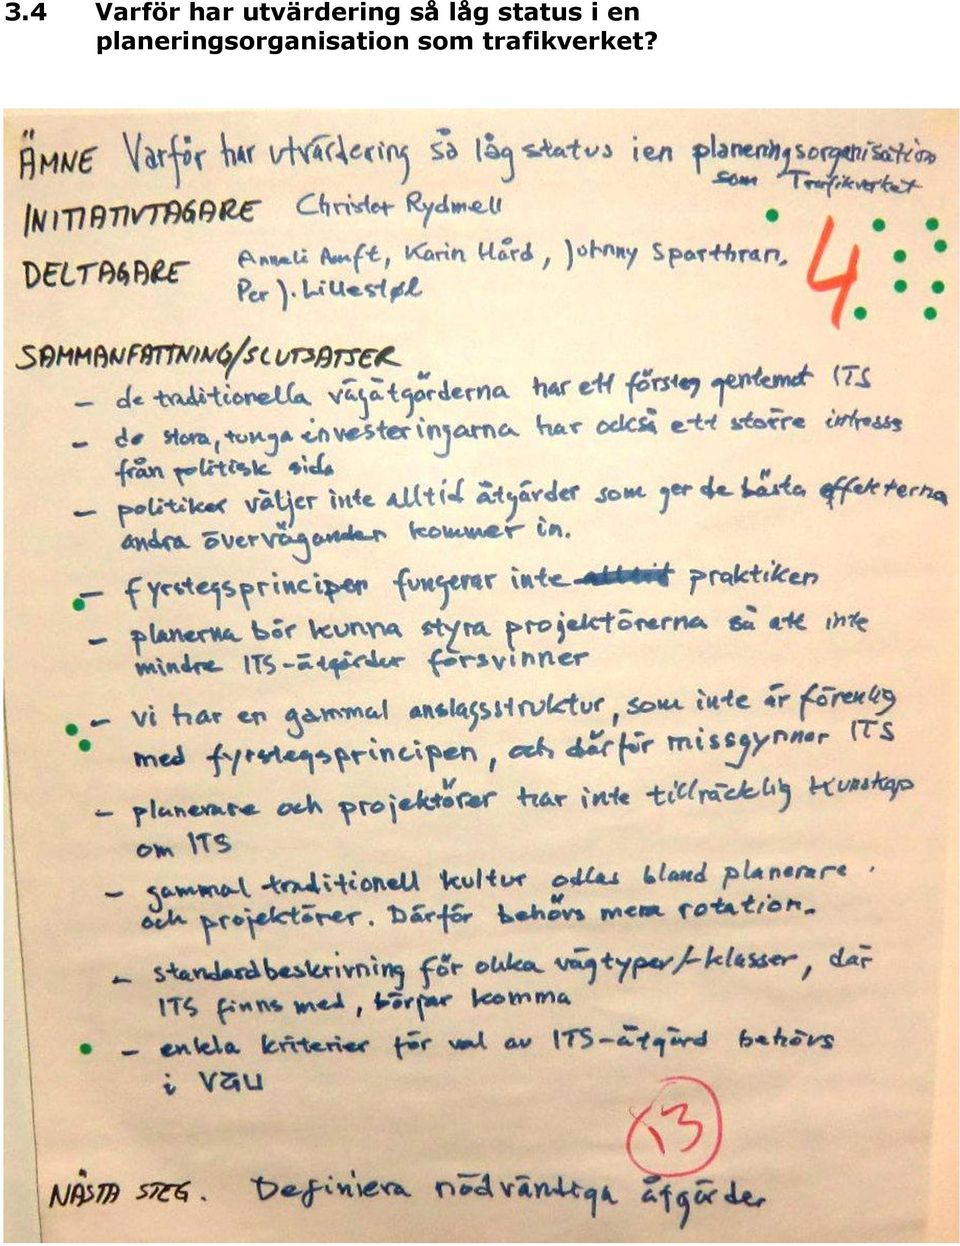 3.4 Varför har utvärdering så låg status i en
planeringsorganisation som trafikverket?
ÄMNE Varför har utvärdering så låg status i en planeringsorganisation
som Trafikverket
INITIATIVTAGARE Christer Rydmell
DELTAGARE Anneli , Karin Hård, Johnny
Per J. Lillestøl
4
SAMMANFATTNING/SLUTSATSER
- de traditionella vägåtgörderna har ett försteg gentemot ITS
- de stora, tunga investeringarna har också ett större intresse
från politisk sida
- politiker väljer inte alltid åtgärder som ger de bästa effekterna
andra överväganden kommer in.
- fyrstegsprincipen fungerar inte praktiken
- planerna bör kunna styra projektörerna så att inte
mindre ITS-åtgärder försvinner
- vi har en gammal anslagsstruktur, som inte är förenlig
med fyrstegsprincipen, och därför missgynnar ITS
- planerare och projektörer har inte tillräcklig kunskap
om ITS
- gammal traditionell kultur odlas bland planerare
och projektörer. Därför behövs mera rotation.
- standardbeskrivning för olika vägtyper/-klasser, där
ITS finns med, komma
- enkla kriterier för val av ITS-åtgärd behövs
i VGU
13
NÄSTA STEG. Definiera nödvändiga åtgärder